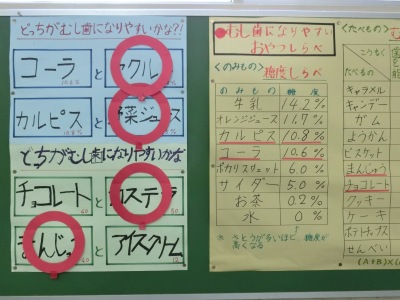 どっちがむし歯になりやすいかな?!
コーラ と クル
10.6%
カルピス と 菜ジュース
10.8%
どちがむし歯になりやすいかな
チョコレート と カステラ
まんじゅう と アイスクリーム
●むし歯になりやすい
おやつしらべ
<のみもの>
糖度しらべ
のみもの 糖度
牛乳 14.2%
オレンジジュース 11.7%
カルピス 10.8%
コーラ 10.6%
ポカリスウェット 6.0%
サイダー 5.0%
お茶 0.2%
水 0%
* さとうがタいほど糖度が
高くなる
<たべもの>
こうもく
たべもの
キャラメル
キャンデー
ガム
ようかん
ビスケット
まんじゅう
チョコレート
クッキー
ケーキ
ポテトチップス
せんべい
(A+B)×(